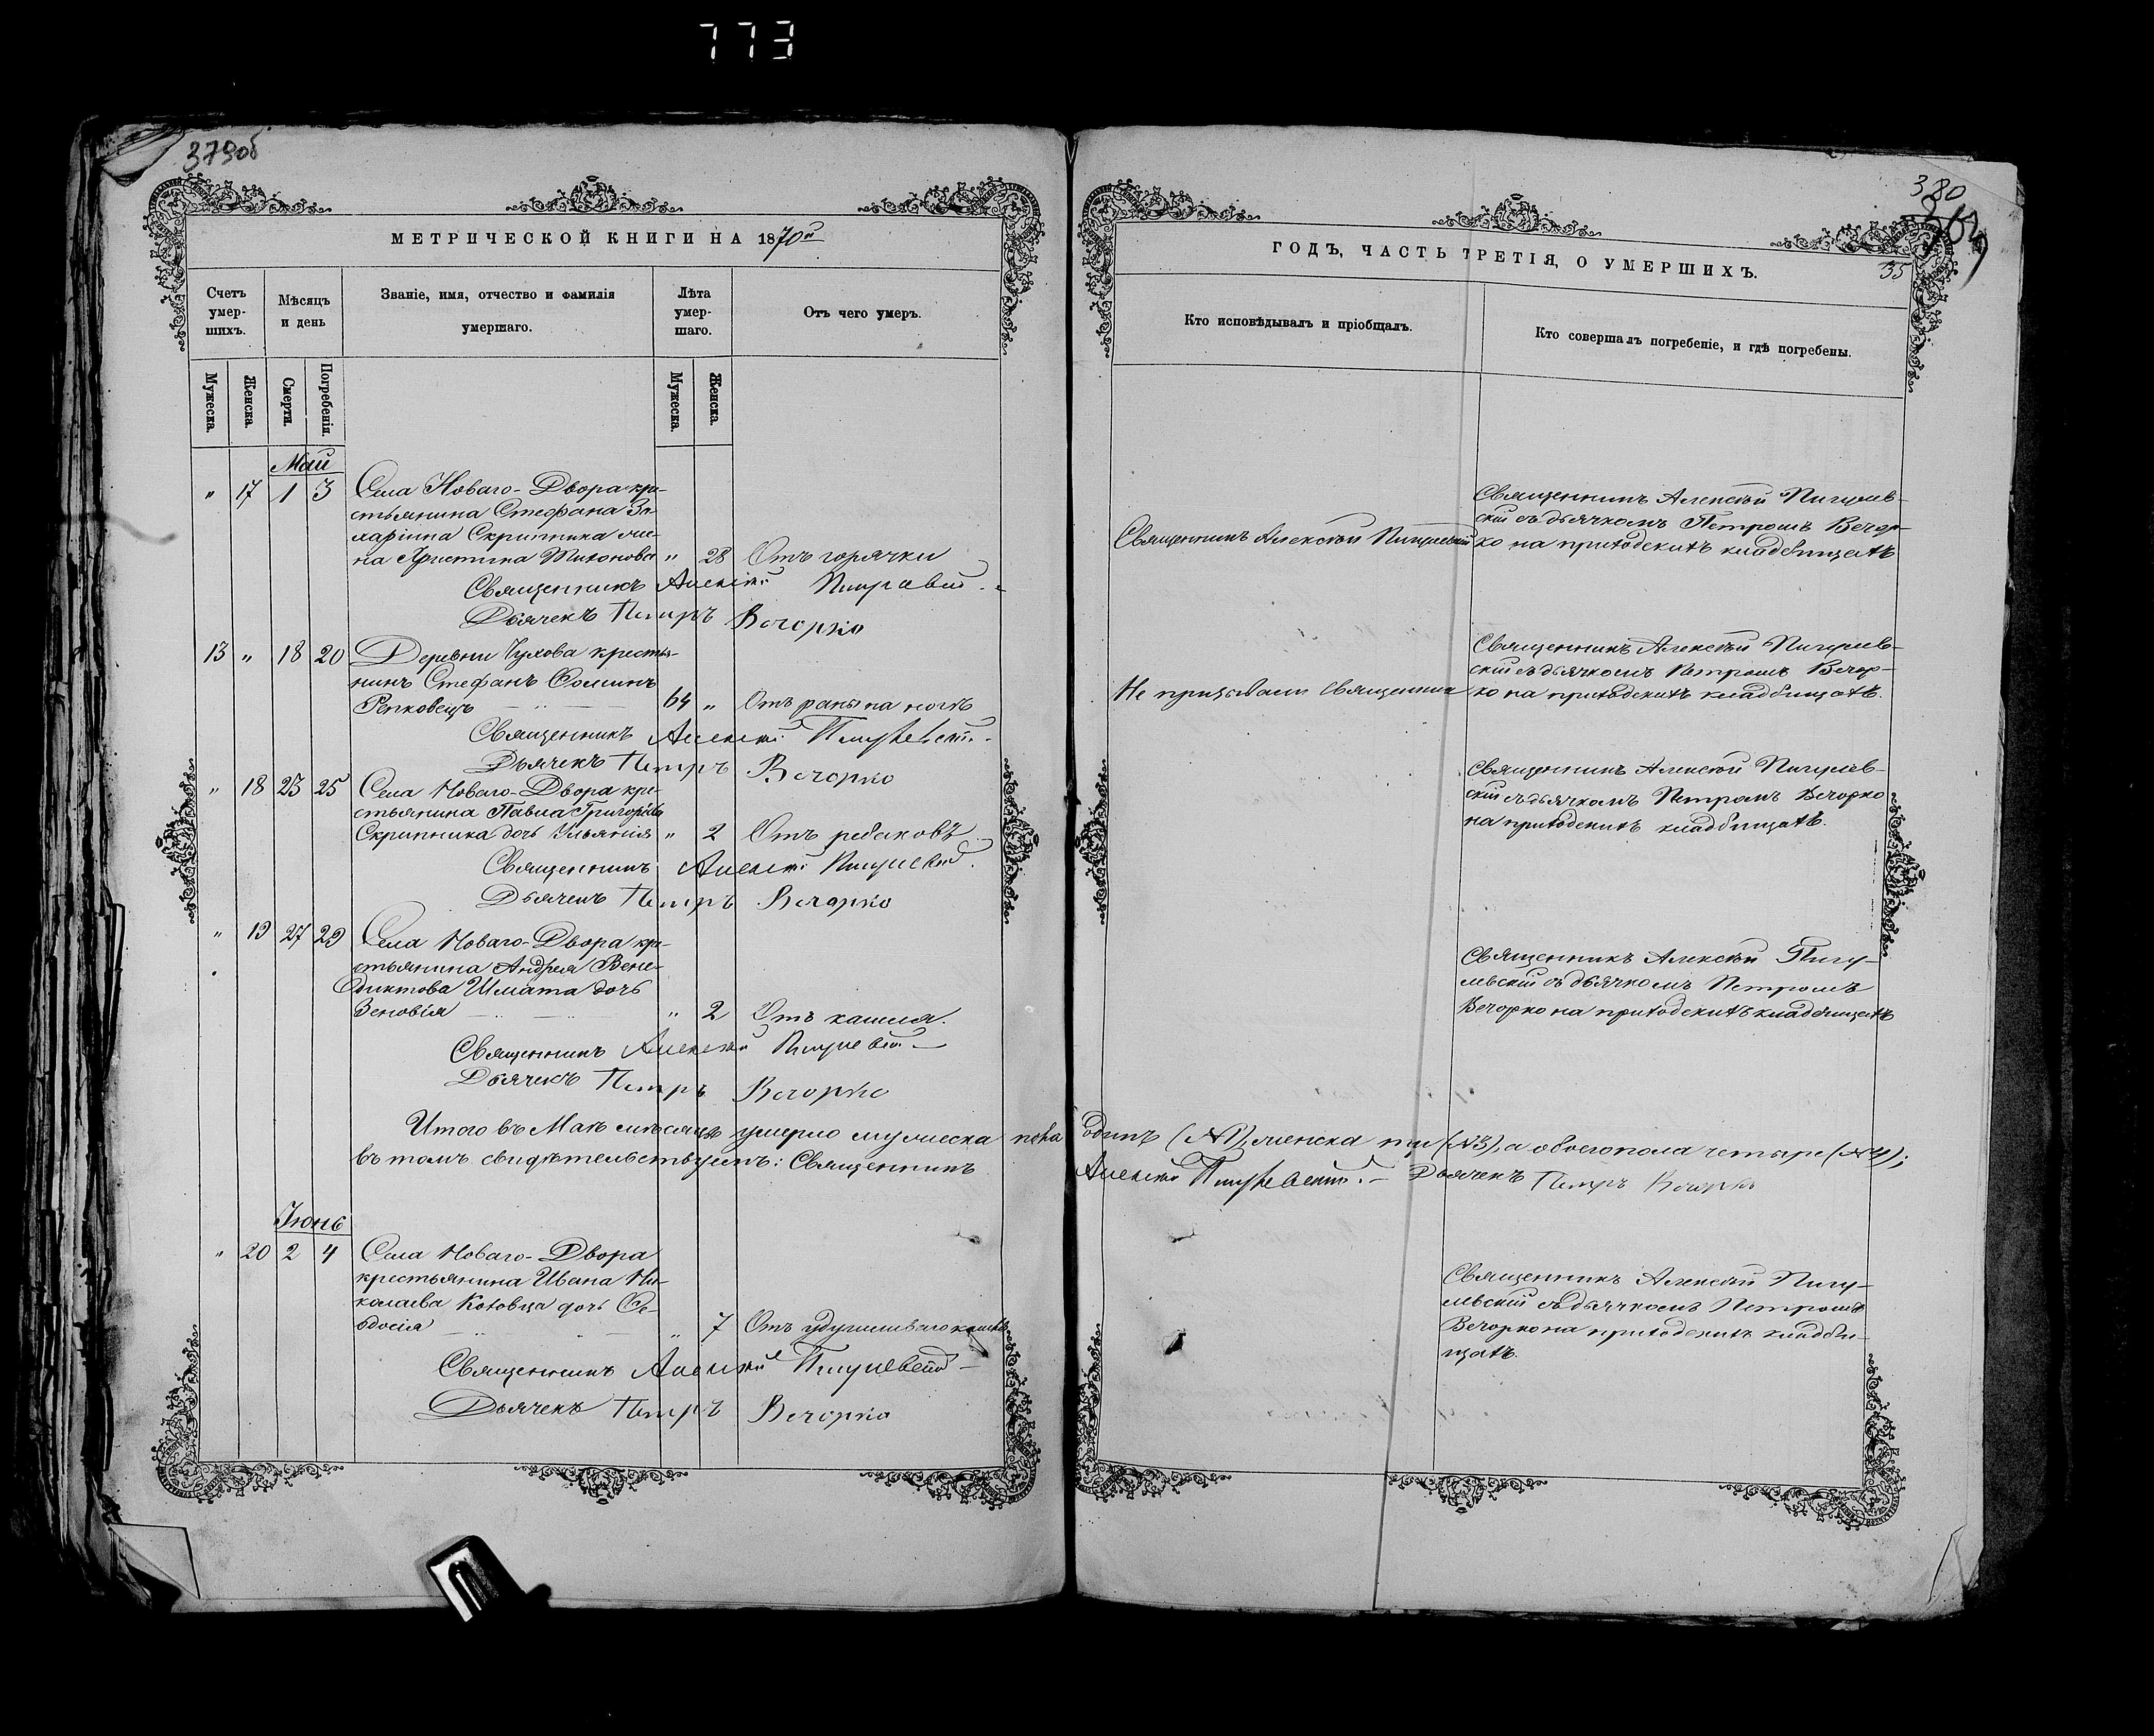 773
379об
МЕТРИЧЕСКОЙ КНИГИ НА 1870й
Счетъ умер-шихъ.
Мѣсяцъ и день
Званіе, имя, отчество и фамилія умершаго.
Лѣта умер-шаго.
Отъ чего умеръ.
Мужеска.
Женска.
Смерти.
Погребенія.
Мужеска.
Женска.
Май
" 17 1 3 Села Новаго-Двора кре-
стьянина Стефана За-
харіина Скрипника же-
на Христина Тихонова " 28 Отъ горячки
Священникъ Алексѣй Пигулевскій
Дьячекъ Петръ Вечорко
13 " 18 20 Деревни Чухова крестья-
нинъ Стефанъ Фоминъ
Репковецъ 64 " Отъ раны на ногѣ
Священникъ Алексѣй Пигулевскій.
Дьячекъ Петръ Вечорко
" 18 23 25 Села Новаго-Двора кре-
стьянина Павла Григорьева
Скрипника дочь Ульянія " 2 Отъ
Священникъ Алексѣй Пигулевскій.
Дьячекъ Петръ Вечорко
" 19 27 29 Села Новаго-Двора кре-
стьянина Андрея Вене-
диктова Шмата дочь
Зеновія " 2 Отъ кашля.
Священникъ Алексѣй Пигулевскій
Дьячекъ Петръ Вечорко
Итого въ Маѣ мѣсяцѣ умерло мужеска пола
въ томъ свидѣтельствуемъ: Священникъ
Іюнь
" 20 2 4 Села Новаго-Двора
крестьянина Ивана Ни-
колаева Коховца дочь Ѳе-
одосія " 7 Отъ удушливаго кашля
Священникъ Алексѣй Пигулевскій
Дьячекъ Петръ Вечорко
380
35
ГОДЪ, ЧАСТЬ ТРЕТІЯ, О УМЕРШИХЪ.
Кто исповѣдывалъ и пріобщалъ.
Кто совершалъ погребеніе, и гдѣ погребены.
Священникъ Алексѣй Пигулевскій
Священникъ Алексѣй Пигулев-
скій съ дьячкомъ Петромъ Вечор-
ко на приходскихъ кладбищахъ
Не призывали священника
Священникъ Алексѣй Пигулев-
скій съ дьячкомъ Петромъ Вечор-
ко на приходскихъ кладбищахъ.
Священникъ Алексѣй Пигулев-
скій съ дьячкомъ Петромъ Вечорко
на приходскихъ кладбищахъ.
Священникъ Алексѣй Пигу-
левскій съ дьячкомъ Петромъ
Вечорко на приходскихъ кладбищахъ
одинъ (№1), женска три (№3), а обоего пола четыре (№4);
Алексѣй Пигулевскій. Дьячекъ Петръ Вечорко
Священникъ Алексѣй Пигу-
левскій съ дьячкомъ Петромъ
Вечорко на приходскихъ кладби-
щахъ.